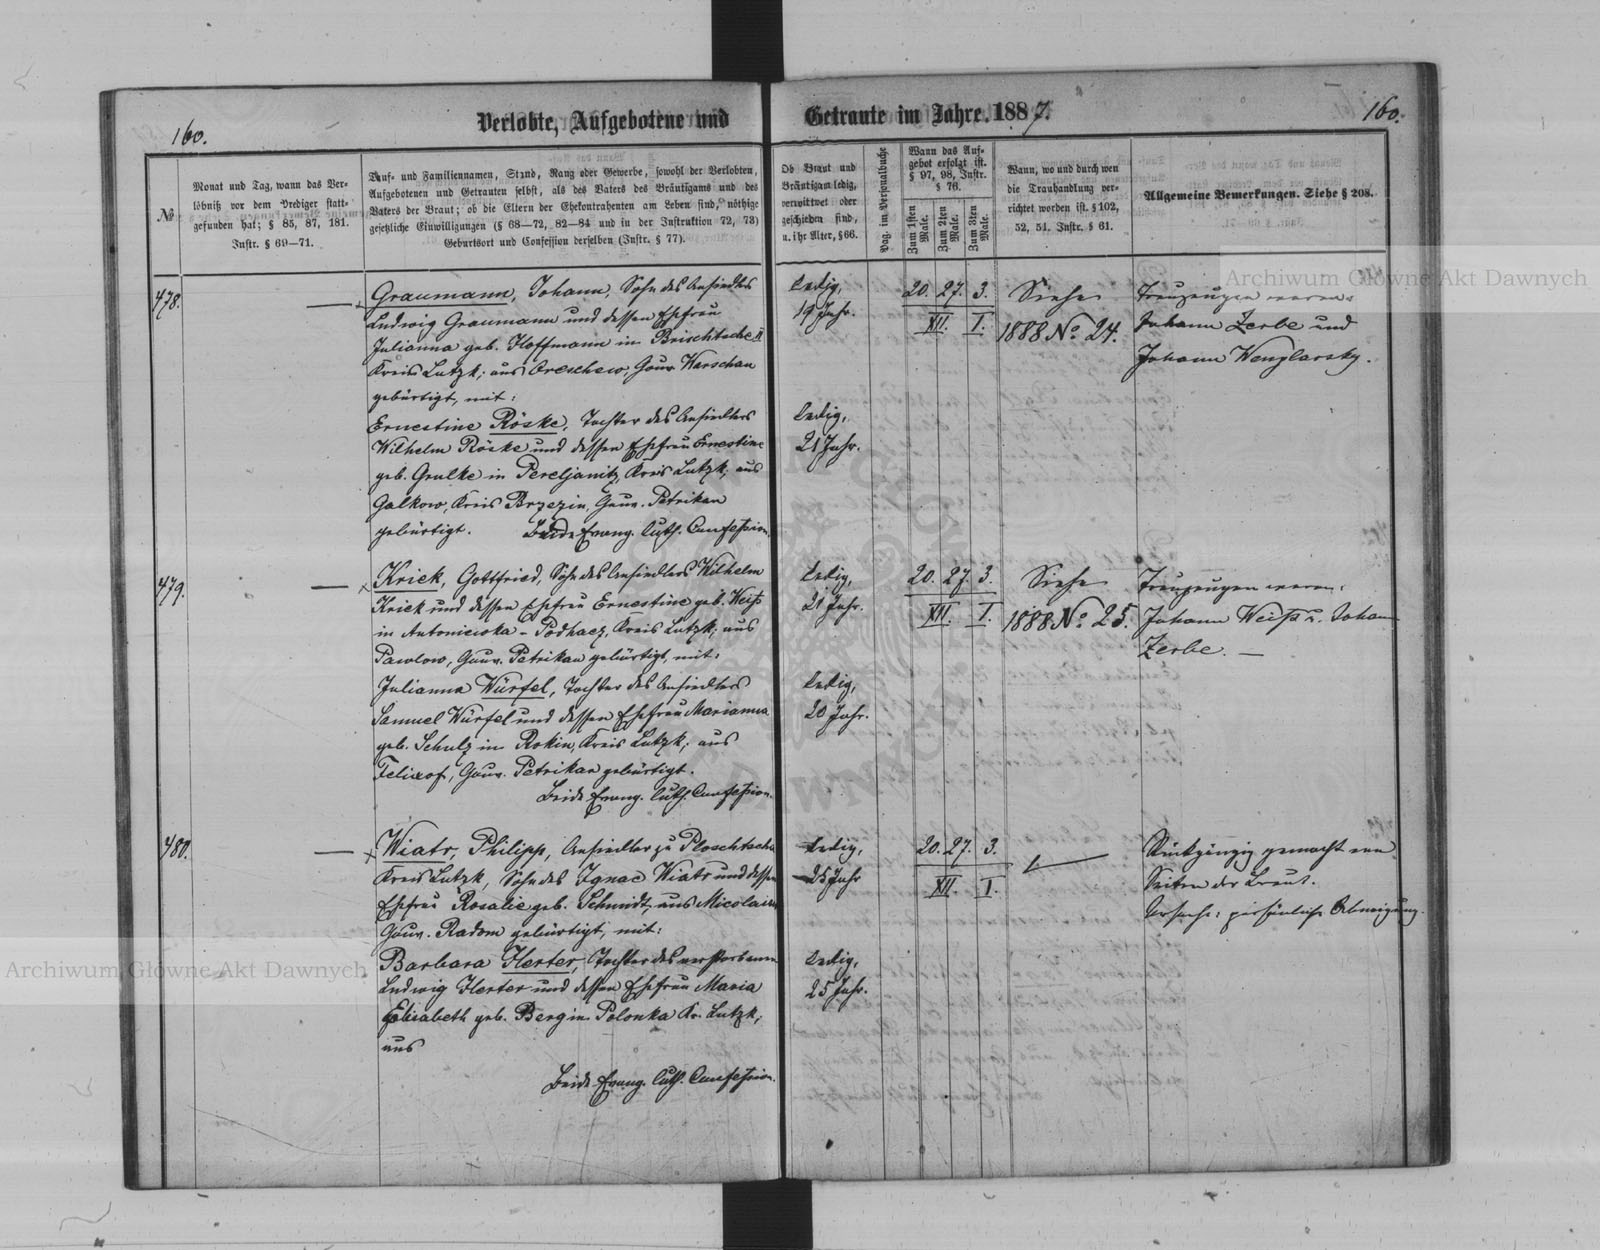 160.
Verlobte, Aufgebotene und
Getraute im Jahre 1887.
160.
№
Monat und Tag, wann das Ver-
löbniß vor dem Prediger statt-
gefunden hat; § 85, 87, 181.
Instr. § 69—71.
Tauf- und Familiennamen, Stand, Rang oder Gewerbe, sowohl der Verlobten,
Aufgebotenen und Getrauten selbst, als des Vaters des Bräutigams und des
Vaters der Braut; ob die Eltern der Ehekontrahenten am Leben sind, nöthige
gesetzliche Einwilligungen (§ 68—72, 82—84 und in der Instruktion 72, 73)
Geburtsort und Confession derselben (Instr. § 77).
Ob Braut und
Bräutigam ledig,
verwittwet oder
geschieden sind,
u. ihr Alter, § 66.
Pag. im Personalbuche
Wann das Auf-
gebot erfolgt ist.
§ 97, 98, Instr.
§ 76.
Zum 1sten Male.
Zum 2ten Male.
Zum 3ten Male.
Wann, wo und durch wen
die Trauhandlung ver-
richtet worden ist. § 102,
52, 51. Instr. § 61.
Allgemeine Bemerkungen. Siehe § 208.
478.
Graumann, Johann, Sohn des Ansiedlers
Ludwig Graumann und dessen Ehefrau
Julianna geb. Hoffmann in Brischtsche II
Kreis Lutzk; aus Oreschew, Gouv. Warschau
gebürtigt, mit:
Ernestine Röske, Tochter des Ansiedlers
Wilhelm Röske und dessen Ehefrau Ernestine
geb. Grulke in Pereljanitz, Kreis Lutzk; aus
Galkow, Kreis Brzezin, Gouv. Petrikau
gebürtigt. Beide Evang. luth. Confession.
ledig,
19 Jahr.
ledig,
21 Jahr.
20. 27. 3.
XII. I.
Siehe
1888 No. 24.
Trauzeugen waren:
Johann Zerbe und
Johann Wenglarsky.
479.
Krick, Gottfried, Sohn des Ansiedlers Wilhelm
Krick und dessen Ehefrau Ernestine geb. Weiß
in Antoniewka - Podhacz, Kreis Lutzk; aus
Pawlow, Gouv. Petrikau gebürtigt, mit:
Julianna Würfel, Tochter des Ansiedlers
Samuel Würfel und dessen Ehefrau Marianna
geb. Schulz in Rokin, Kreis Lutzk; aus
Felixof, Gouv. Petrikau gebürtigt.
Beide Evang. luth. Confession.
ledig,
21 Jahr.
ledig,
20 Jahr.
20. 27. 3.
XII. I.
Siehe
1888 No. 25.
Trauzeugen waren:
Johann Weiß u. Johann
Zerbe. —
480.
Wiatr, Philipp, Ansiedler zu Ploschtscha
Kreis Lutzk, Sohn des Ignac Wiatr und dessen
Ehefrau Rosalie geb. Schmidt, aus
Gouv. Radom gebürtigt, mit:
Barbara Herter, Tochter des verstorbenen
Ludwig Herter und dessen Ehefrau Maria
Elisabeth geb. Berg in Polonka Kr. Lutzk;
aus
Beide Evang. luth. Confession.
ledig,
25 Jahr
ledig,
25 Jahr.
20. 27. 3.
XII. I.
Rückgängig gemacht von
Seiten der Braut.
Ursache: persönliche Abneigung.
Archiwum Główne Akt Dawnych
Archiwum Główne Akt Dawnych